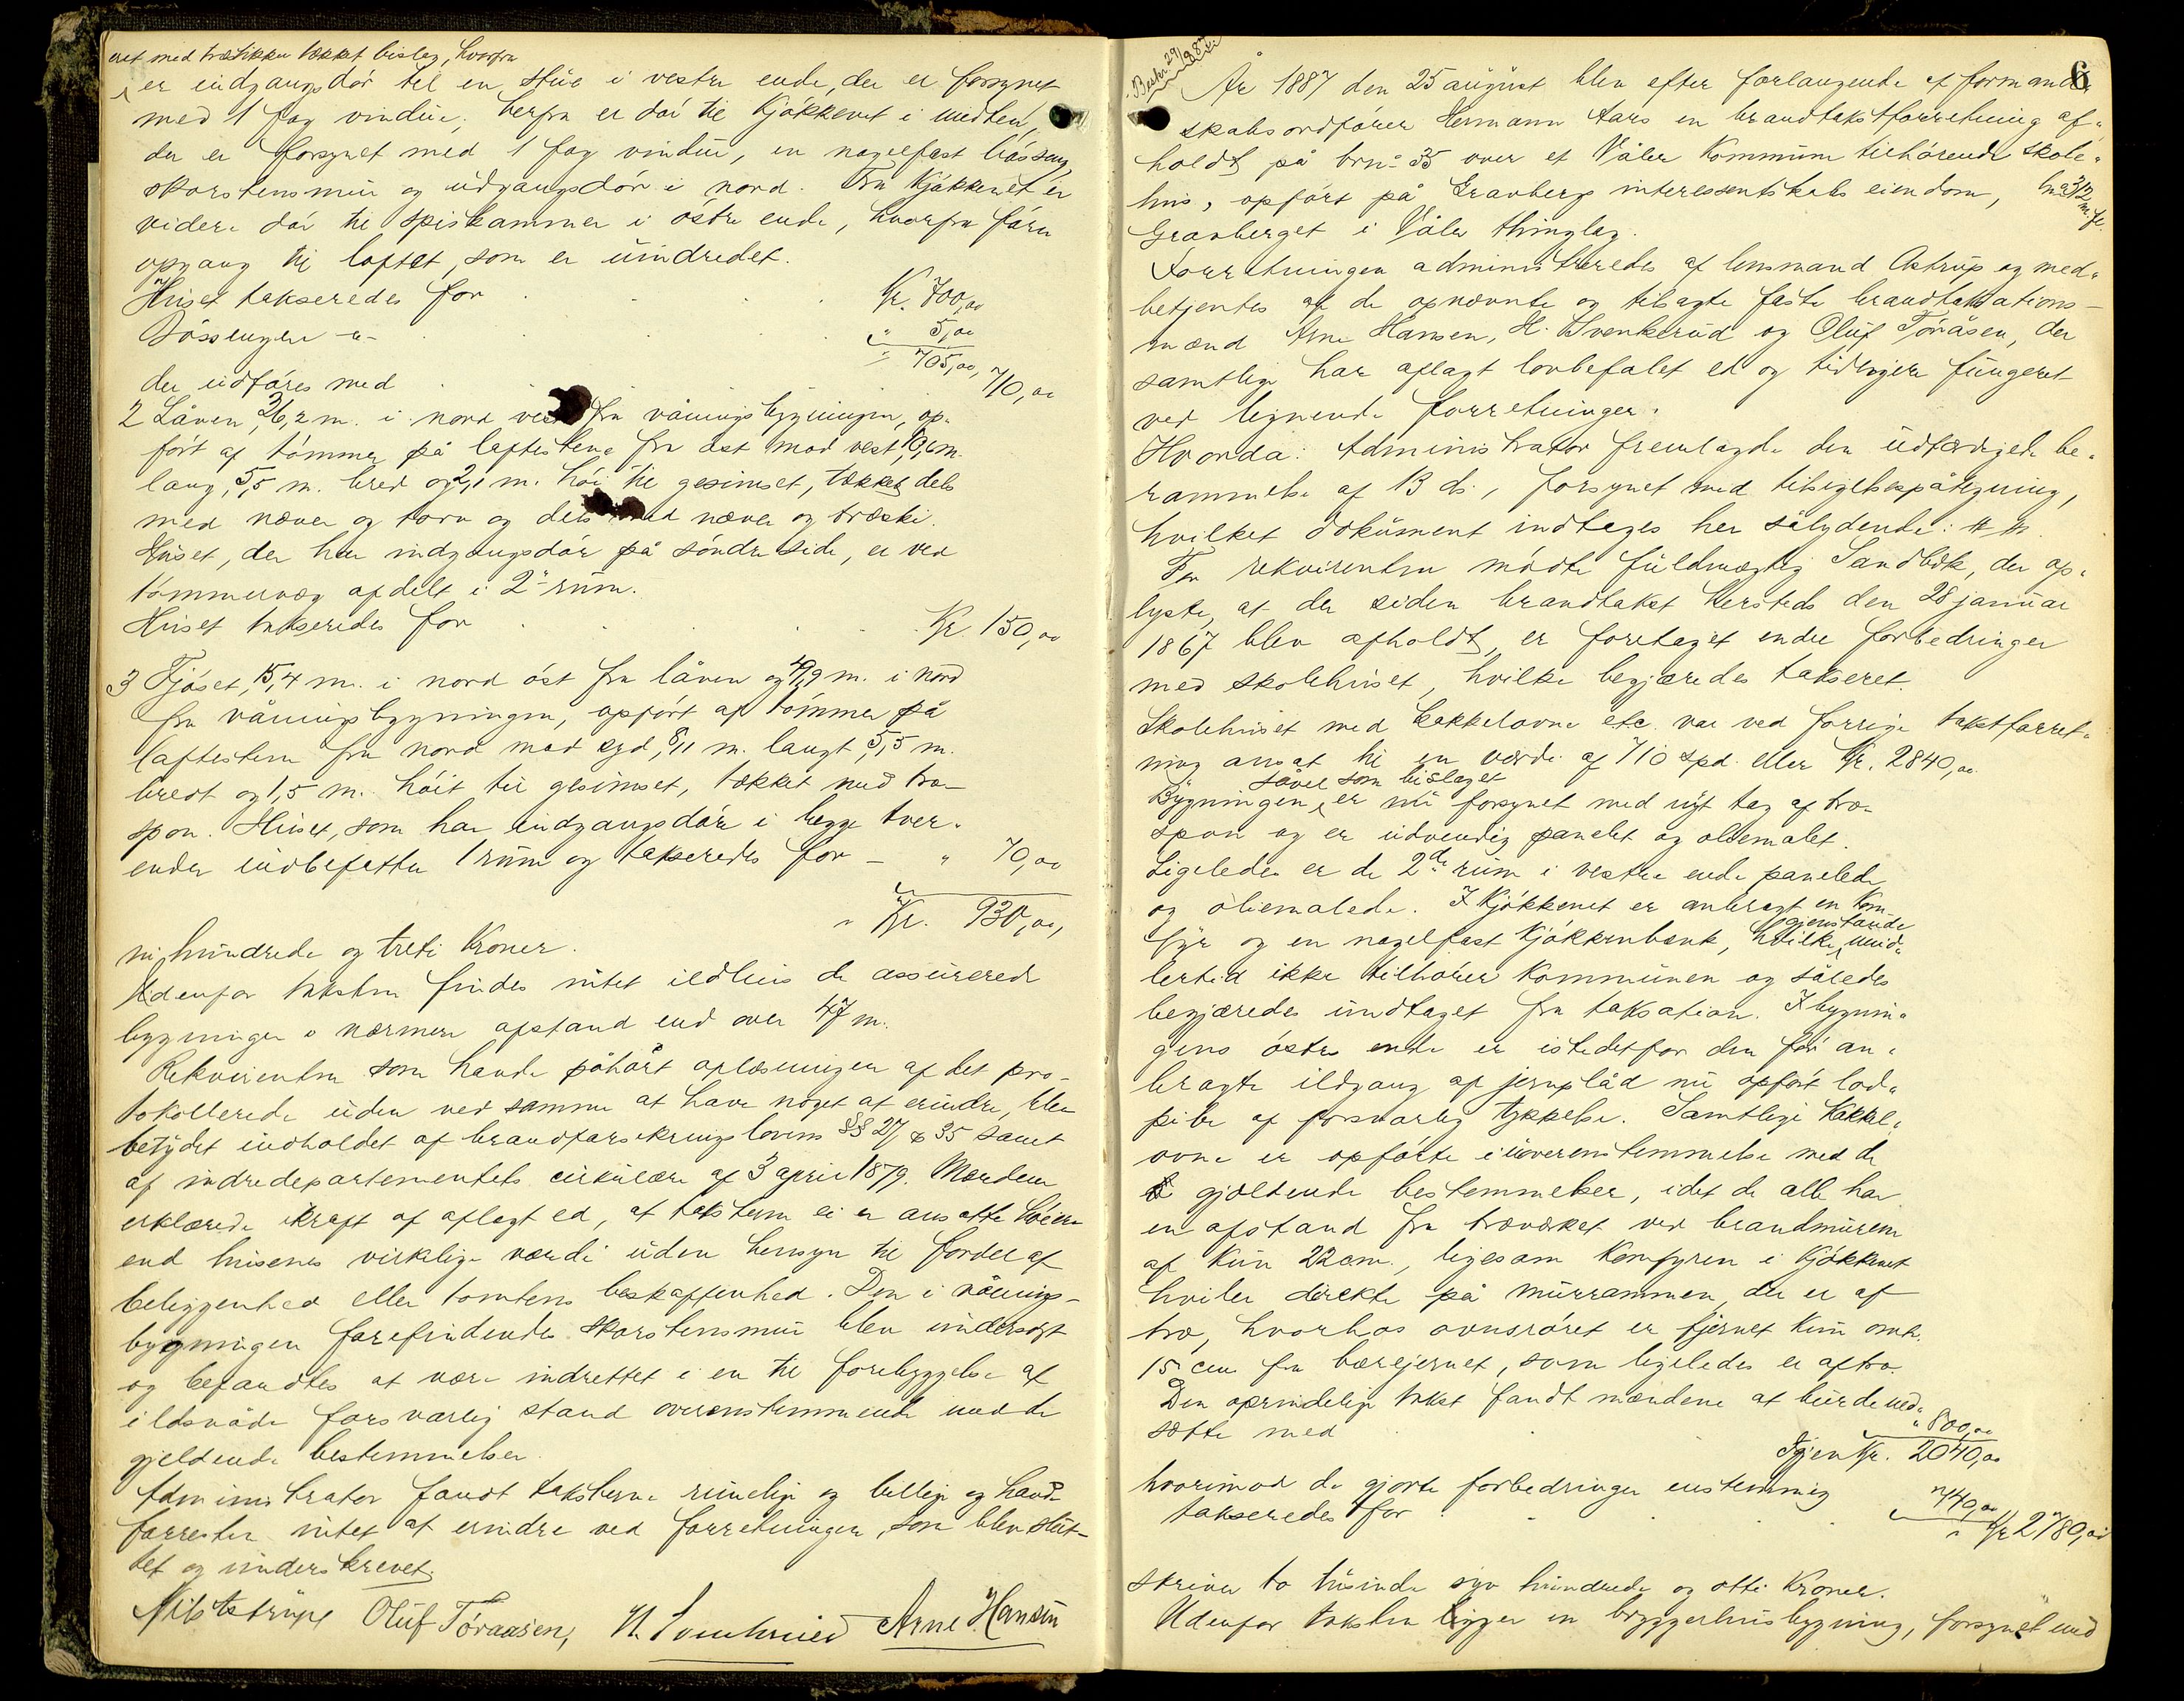 met med trætikker tækket bislag, hvorfra
er indgangsdör til en stue i vestre ende, der er forsynet
med 1 fag vindue; herfra er dör til kjökkenet i midten,
der er forsynet med 1 fag vindue, en nagelfast bössing,
skorstensmur og udgangsdör i nord. Fra kjökkenet er
videre dör til spiskammer i östre ende, hvorfra förer
opgang til loftet, som er uindredet.
Huset takseredes for . . . Kr. 700,00
Bössingen -"- . . . " 5,00
" 705,00,
der udföres med . . . 710,00
2 Låven, 36,2 m. i nord vest fra våningsbygningen, op-
fört af tömmer på laftestene fra öst mod vest, 10,6 m.
lang, 5,5 m. bred og 2,1 m. höi til gesimset, tækket dels
med næver og torv og dels med næver og træski.
Huset, der har indgangsdör på söndre side, er ved
tömmervæg afdelt i 2 rum.
Huset takseredes for . . . Kr. 150,00
3 Fjöset, 15,4 m. i nord öst fra låven og 49,9 m. i nord
fra våningsbygningen, opfört af tömmer på
laftestene fra nord mod syd, 8,11 m. langt, 5,5 m.
bredt og 1,5 m. höit til gesimset, tækket med træ-
spon. Huset, som har indgangsdöre i begge tver-
ender indbefatter 1 rum og takseredes for - " 70,00
" Kr. 930,00,
ni hundrede og treti Kroner.
Udenfor taksten findes intet ildhus de assurerede
bygninger i nærmere afstand end over 47 m.
Rekvirenten som havde påhört oplæsningen af det pro-
tokollerede uden ved samme at have noget at erindre, blev
betydet indholdet af brandforsikringslovens §§ 27 & 35 samt
af indredepartementets cirkulære af 3 april 1879. Mændene
erklærede i kraft af aflagt ed, at taksterne ei er ansatte höiere
end husenes virkelige værdi uden hensyn til fordel af
beliggenhed eller tomtens beskaffenhed. Den i vånings-
bygningen forefindende skorstensmur blev undersögt
og befandtes at være indrettet i en til forebyggelse af
ildsvåde forsvarlig stand overensstemmende med de
gjeldende bestemmelser.
Administrator fandt taksterne rimelige og billige og havde
forresten intet at erindre ved forretningen, som blev slut-
tet og underskrevet.
Nils Astrup Oluf Töraasen, H. Svenkerud Arne Hansen
6
År 1887 den 25 august blev efter forlangende af formand-
skabsordförer Hermann Aars en brandtakstforretning af-
holdt på brn: 35 over et Våler Kommune tilhörende skole-
hus, opfört på Gravberg interessentskabs eiendom,
Gravberget i Våler thinglag.
Forretningen administreredes af lensmand Astrup og med-
betjentes af de opnævnte og tilsagte faste brandtaksations-
mænd Arne Hansen, H. Svenkerud og Oluf Töråsen, der
samtlige har aflagt lovbefalet ed og tidligere fungeret
ved lignende forretninger.
Hvorda: Administrator fremlagde den udfærdigede be-
rammelse af 13 ds., forsynet med tilsigelsespåtegning,
hvilket dokument indtages her sålydende:
For rekvirenten mödte fuldmægtig Sandbæk, der op-
lyste, at der siden brandtakst hersteds den 28 januar
1867 blev afholdt, er foretaget endre forbedringer
med skolehuset, hvilke begjæredes takseret.
Skolehuset med kakkelovne etc. var ved forrige takstforret-
ning ansat til en værdi af 710 spd. eller Kr. 2840,00.
såvel som bislaget
Bygningen er nu forsynet med nyt tag af træ-
spon og er udvendig panelet og oliemalet.
Ligeledes er de 2de rum i vestre ende panelede
og oliemalede. I kjökkenet er anbragt en kom-
gjenstande
fyr og en nagelfast kjökkenbænk, hvilke imid-
lertid ikke tilhörer Kommunen og således
begjæredes undtaget fra taksation. I bygnin-
gens östre ende er istedetfor den för an-
bragte ildgang af jernplåd nu opfört lod-
pibe af forsvarlig tykkelse. Samtlige kakkel-
ovne er opförte i uoverensstemmelse med de
gjældende bestemmelser, idet de alle har
en afstand fra træværket ved brandmuren
af kun 22 cm., ligesom komfyren i kjökkenet
hviler direkte på murrammen, der er af
træ, hvorhos ovnsröret er fjernet kun omtr.
15 cm fra bærejernet, som ligeledes er af træ.
Den oprindelige takst fandt mændene at burde ned-
sætte med " 800,00
Igjen Kr. 2040,00
hvorimod de gjorte forbedringer enstemmig
takseredes for . . . " 740,00
" Kr. 2780,00
skriver to tusinde syv hundrede og otti Kroner.
Udenfor taksten ligger en bryggerhusbygning, forsynet med